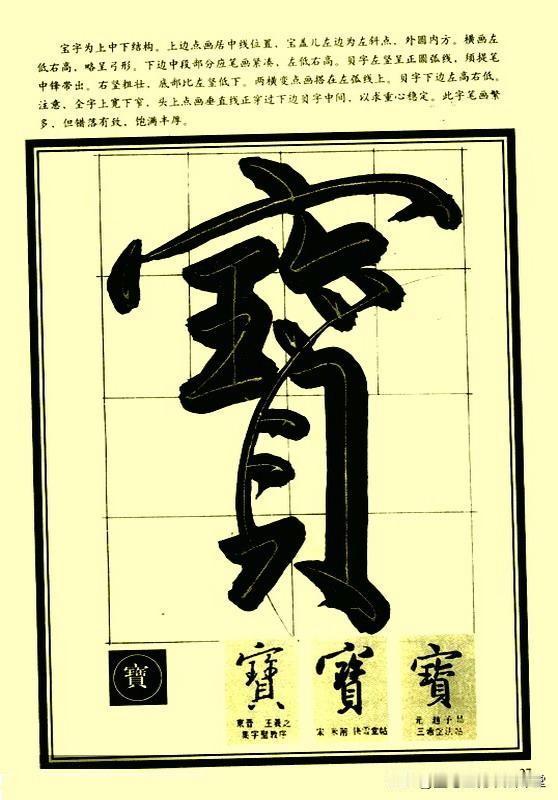 宝字为上中下结构。上边点画居中线位置，宝盖儿左边为左斜点，外圆内方。横画左
低右高，略呈弓形。下边中段部分应笔画紧凑，左低右高。贝字左竖呈正圆弧线，须提笔
中锋带出。右竖粗壮，底部比左竖低下。两横变点搭在左弧线上。贝字下边左高右低。
注意，全字上宽下窄，头上点画垂直线正穿过下边贝字中间，以求重心稳定。此字笔画繁
多，但错落有致，饱满丰厚。
寶
寶
寶 寶 寶
東晋 王羲之
集字聖教序
宋 米芾 快雪堂帖
元 趙子昂
三希堂法帖
37